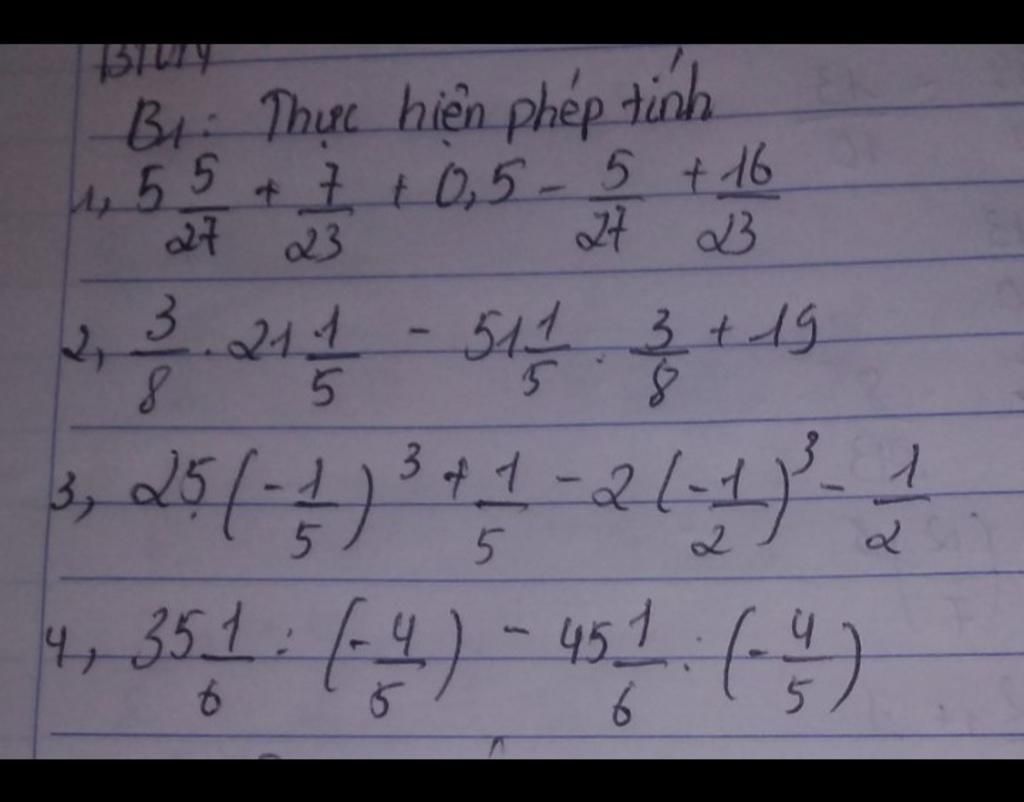 B1: Thực hiện phép tính
1, 5 5/27 + 7/23 + 0,5 - 5/27 + 16/23
2, 3/8 . 21 1/5 - 51 1/5 . 3/8 + 19
3, 25 (-1/5)^3 + 1/5 - 2 (-1/2)^3 - 1/2
4, 35 1/6 : (-4/5) - 45 1/6 : (-4/5)